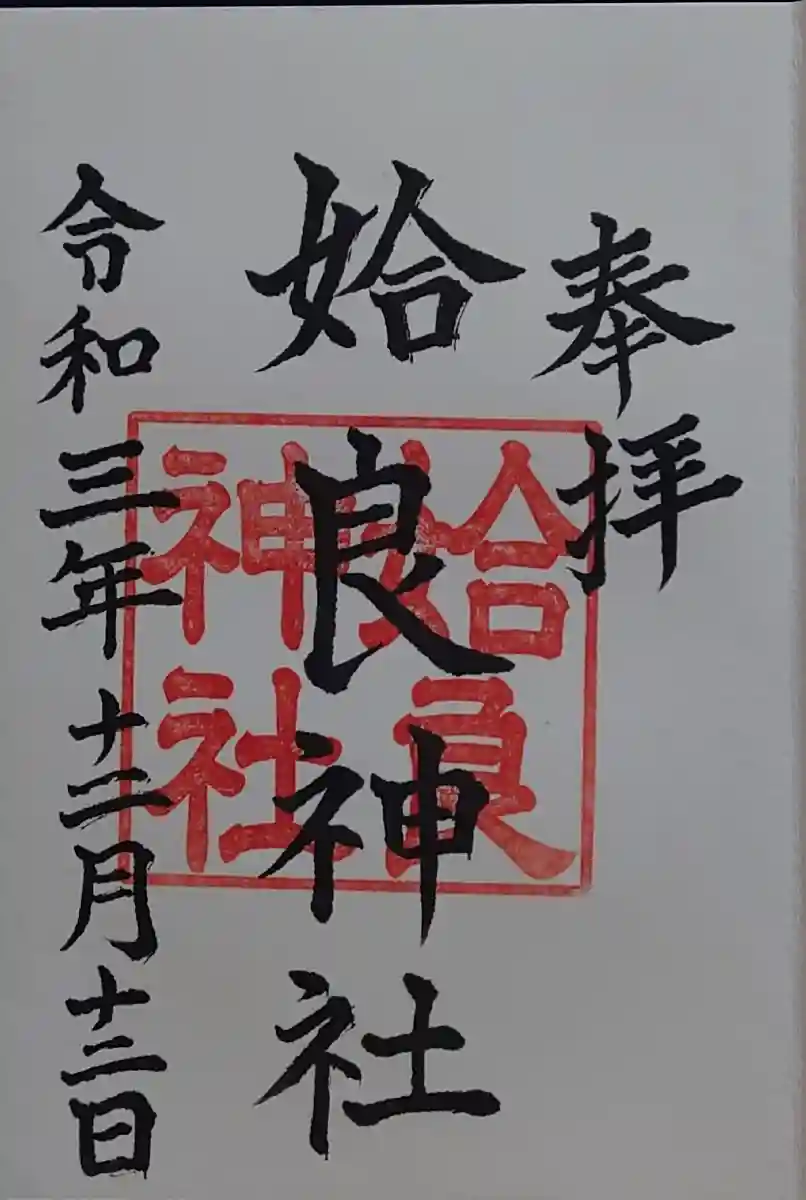 奉拝
姶良神社
令和三年十二月十三日
姶良
神社